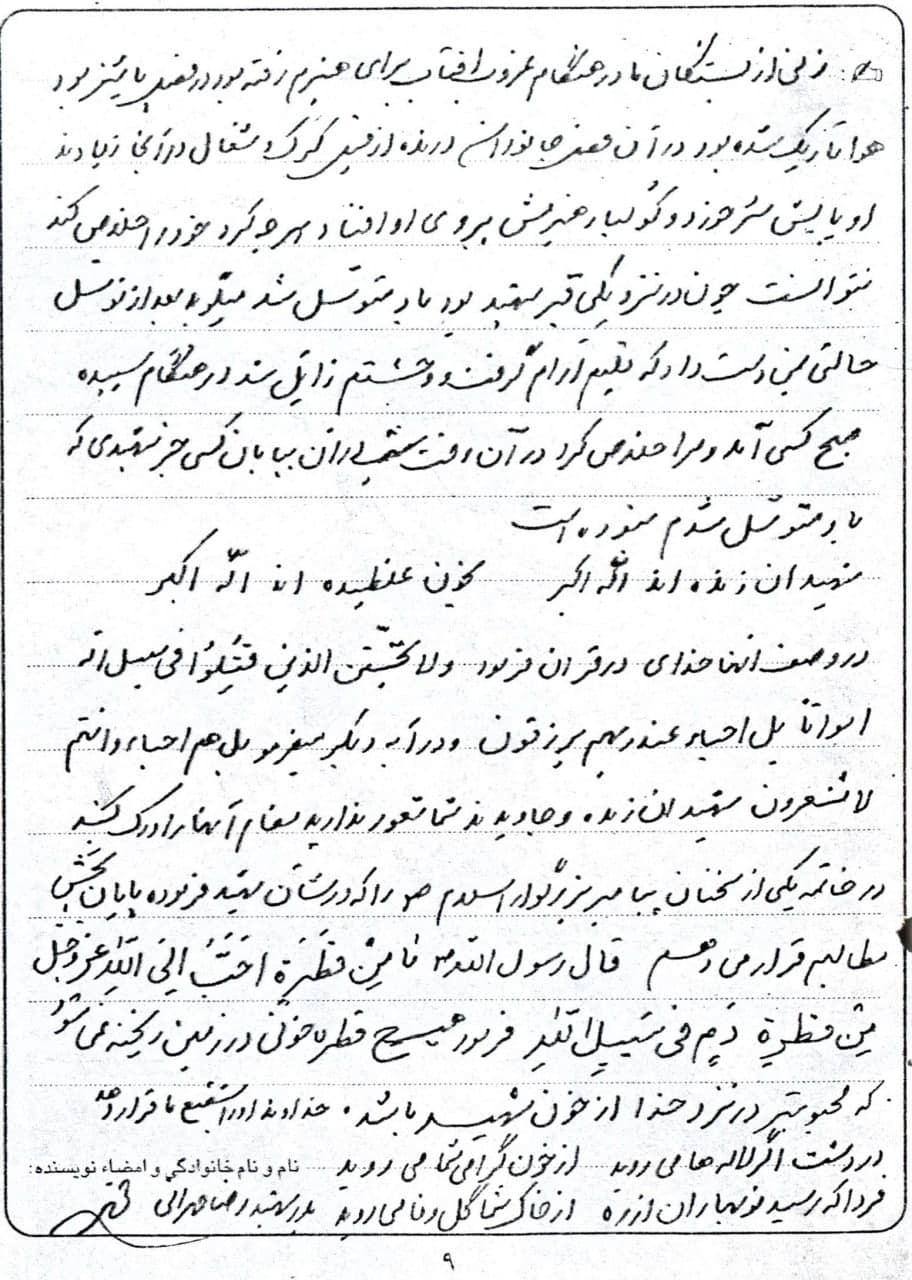 زنی از بستگان ما در هنگام غروب افتاب برای هیزم رفته بود در فصل پائیز بود
هوا تاریک شده بود در آن فصل جانوران درنده از قبیل گرگ و شغال در آنجا زیادند
او پایش سُر خورد و کولبار هیزمش بروی او افتاد هر چه کرد خود را خلاص کند
نتوانست چون در نزدیکی قبر شهید بود باو متوسل شد میگوید بعد از توسل
حالتی بمن دست داد که قلبم آرام گرفت و وحشتم زایل شد در هنگام سپیده
صبح کسی آمد و مرا خلاص کرد در آن وقت شب در آن بیابان کسی جز شهیدی که
باو متوسل شدم نبوده است
شهیدان زنده اند الله اکبر بخون غلطیده اند الله اکبر
در وصف انها خدای در قران فرمود ولا تحسبن الذین قُتِلُوا فی سبیل الله
امواتا بل احیاء عند ربهم یرزقون و در آیه دیگر میفرمود بل هم احیاء و انتم
لا تشعرون شهیدان زنده و جاویدند شما شعور ندارید مقام آنها را درک کنید
در خاتمه یکی از سخنان پیامبر بزرگوار اسلام ص را که در شان شهید فرموده پایان بخش
مطالبم قرار می دهم قال رسول الله ص ما مِنْ قَطْرَةٍ اَحَبَّ اِلَی اللهِ عَزَّ وَ جَلَّ
مِنْ قَطْرِةِ دَمٍ فی سَبیلِ اللهِ فرمود هیچ قطره خونی در زمین ریخته نمی شود
که محبوبتر در نزد خدا از خون شهید باشد. خداوند اورا شفیع ما قرار دهد
در دشت اگر لاله ها می روید از خون گرامی شما می روید نام و نام خانوادگی و امضاء نویسنده:
فردا که رسید نو بهاران از ره از خاک شما گل وفا می روید پدر شهید رضا مهرالی
۹